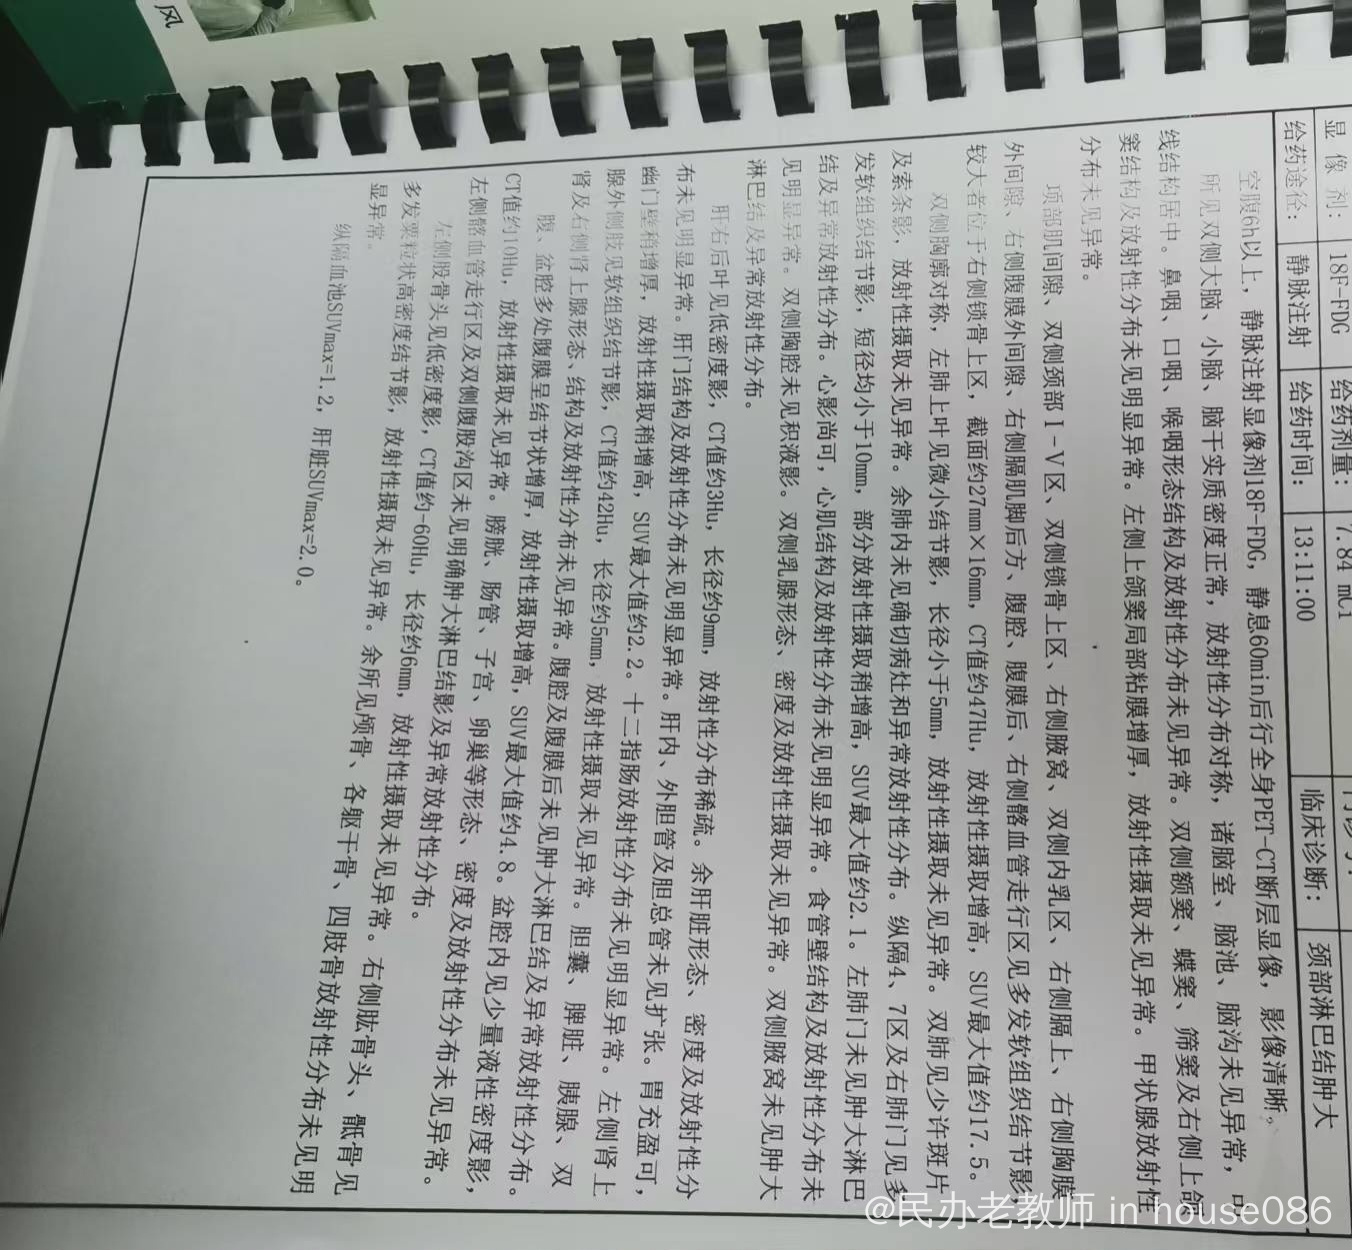 风
显 像 剂: 18F-FDG 给药剂量: 7.84 mCi
给药途径: 静脉注射 给药时间: 13:11:00 临床诊断: 颈部淋巴结肿大
空腹6h以上，静脉注射显像剂18F-FDG，静息60min后行全身PET-CT断层显像，影像清晰。
所见双侧大脑、小脑、脑干实质密度正常，放射性分布对称，诸脑室、脑池、脑沟未见异常，中
线结构居中。鼻咽、口咽、喉咽形态结构及放射性分布未见异常。双侧额窦、蝶窦、筛窦及右侧上颌
窦结构及放射性分布未见明显异常。左侧上颌窦局部粘膜增厚，放射性摄取未见异常。甲状腺放射性
分布未见异常。
项部肌间隙、双侧颈部Ⅰ-Ⅴ区、双侧锁骨上区、右侧腋窝、双侧内乳区、右侧膈上、右侧胸膜
外间隙、右侧腹膜外间隙、右侧膈肌脚后方、腹腔、腹膜后、右侧髂血管走行区见多发软组织结节影，
较大者位于右侧锁骨上区，截面约27mm×16mm，CT值约47Hu，放射性摄取增高，SUV最大值约17.5。
双侧胸廓对称，左肺上叶见微小结节影，长径小于5mm，放射性摄取未见异常。双肺见少许斑片
及索条影，放射性摄取未见异常。余肺内未见确切病灶和异常放射性分布。纵隔4、7区及右肺门见多
发软组织结节影，短径均小于10mm，部分放射性摄取稍增高，SUV最大值约2.1。左肺门未见肿大淋巴
结及异常放射性分布。心影尚可，心肌结构及放射性分布未见明显异常。食管壁结构及放射性分布未
见明显异常。双侧胸腔未见积液影。双侧乳腺形态、密度及放射性摄取未见异常。双侧腋窝未见肿大
淋巴结及异常放射性分布。
肝右后叶见低密度影，CT值约3Hu，长径约9mm，放射性分布稀疏。余肝脏形态、密度及放射性分
布未见明显异常。肝门结构及放射性分布未见明显异常。肝内、外胆管及胆总管未见扩张。胃充盈可，
幽门壁稍增厚，放射性摄取稍增高，SUV最大值约2.2。十二指肠放射性分布未见明显异常。左侧肾上
腺外侧肢见软组织结节影，CT值约42Hu，长径约5mm，放射性摄取未见异常。胆囊、脾脏、胰腺、双
肾及右侧肾上腺形态、结构及放射性分布未见异常。腹腔及腹膜后未见肿大淋巴结及异常放射性分布。
腹、盆腔多处腹膜呈结节状增厚，放射性摄取增高，SUV最大值约4.8。盆腔内见少量液性密度影，
CT值约10Hu，放射性摄取未见异常。膀胱、肠管、子宫、卵巢等形态、密度及放射性分布未见异常。
左侧髂血管走行区及双侧腹股沟区未见明确肿大淋巴结影及异常放射性分布。
左侧股骨头见低密度影，CT值约-60Hu，长径约6mm，放射性摄取未见异常。右侧肱骨头、骶骨见
多发粟粒状高密度结节影，放射性摄取未见异常。余所见颅骨、各躯干骨、四肢骨放射性分布未见明
显异常。
纵隔血池SUVmax=1.2，肝脏SUVmax=2.0。
@民办老教师 in house086